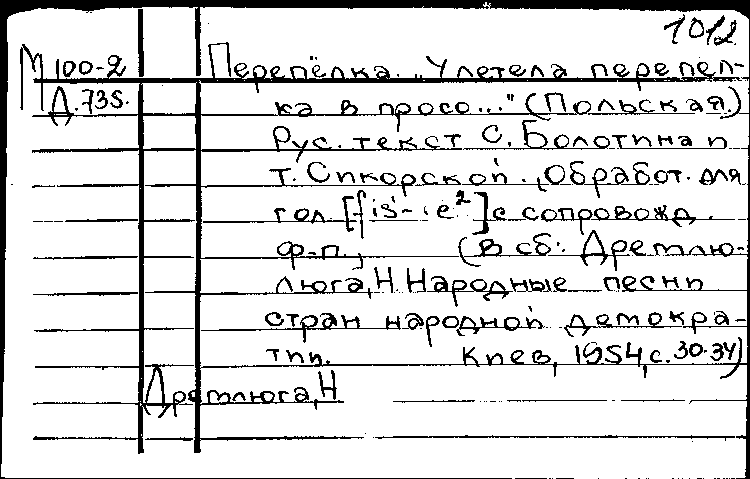 1012
М 100-2 Перепёлка. „Улетела перепел-
Д.735. ка в просо..." (Польская)
Рус. текст С. Болотина и
Т. Сикорской. (Обработ. для
гол. [fis'-e²] с сопровожд.
ф-п., (В сб: Дремлю-
люга, Н Народные песни
стран народной демокра-
тии. Киев, 1954, с. 30-34)
Дремлюга, Н